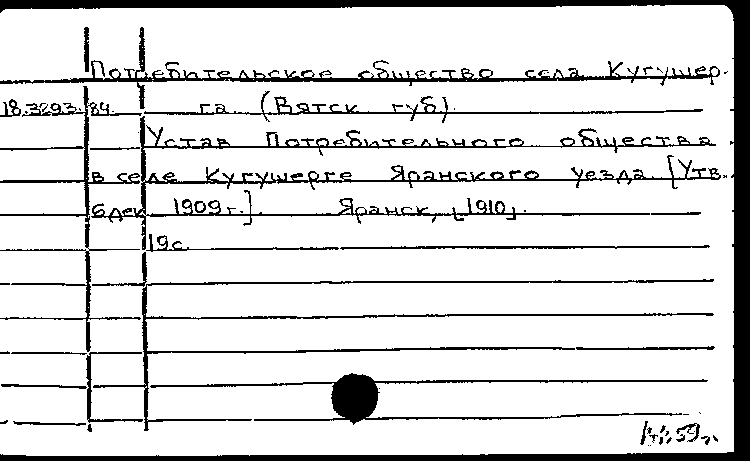 Потребительское общество села Кугушер-
18.3293.84. га (Вятск губ).
Устав Потребительного общества
в селе Кугушерге Яранского уезда. [Утв.
6 дек 1909 г.]. Яранск, [1910].
19 с.